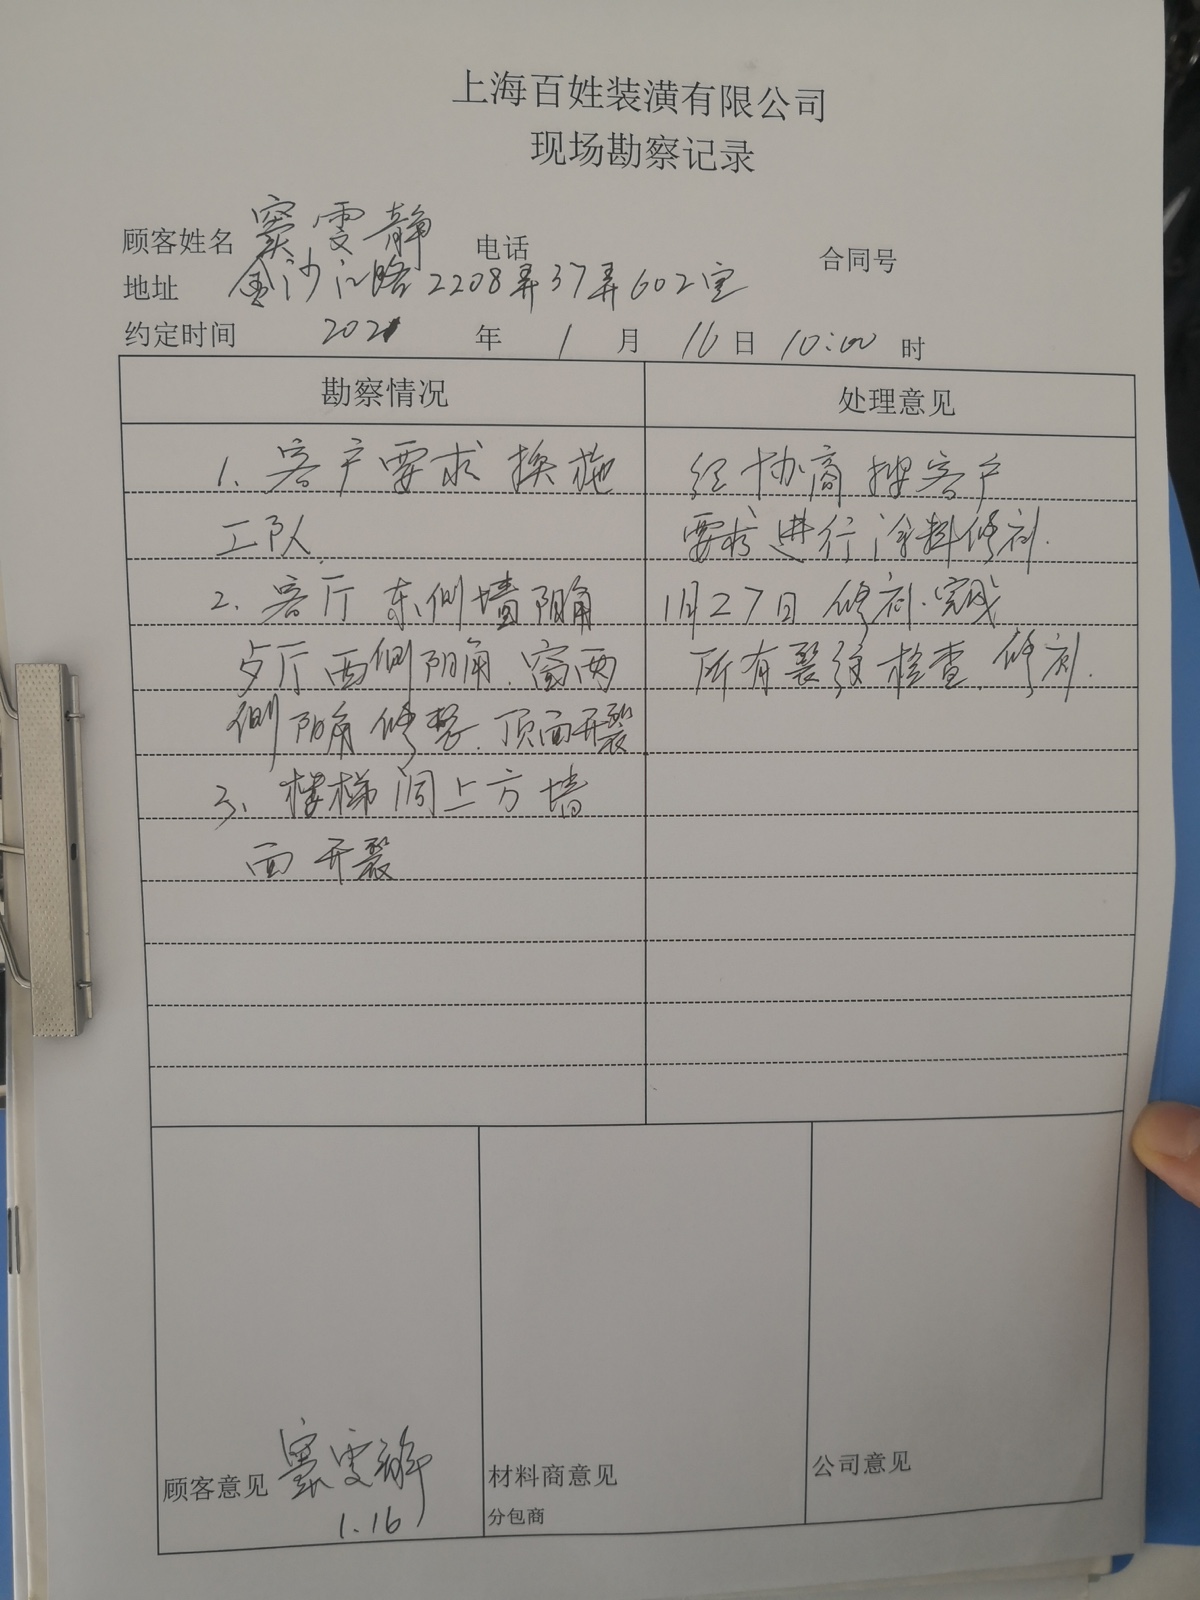 上海百姓装潢有限公司
现场勘察记录
顾客姓名 窦雯静 电话 合同号
地址 金沙江路2208弄37弄602室
约定时间 2021 年 1 月 16 日 10:00 时
勘察情况 处理意见
1. 客户要求换施 经协商按客户
工队 要求进行涂料修补.
2. 客厅东侧墙阴角 1月27日修补完成
歺厅西侧阴角.窗两 所有裂纹检查.修补.
侧阴角修整.顶面开裂
3、楼梯间上方墙
面开裂
顾客意见 窦雯静 材料商意见 公司意见
1.16 分包商